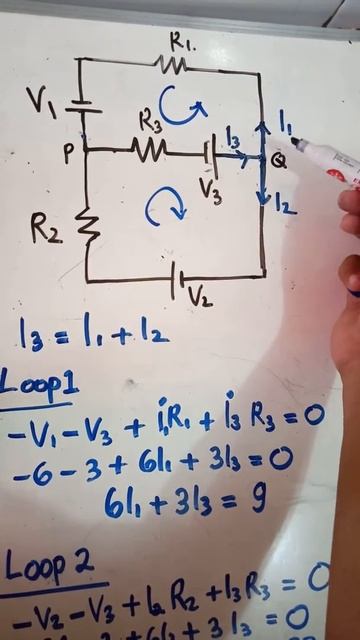 R₁
V₁
R₃
I₃
I₁
P
Q
V₃
I₂
R₂
V₂
I₃ = I₁ + I₂
Loop1
-V₁ - V₃ + i₁R₁ + i₃ R₃ = 0
-6 - 3 + 6I₁ + 3I₃ = 0
6I₁ + 3I₃ = 9
Loop 2
-V₂ - V₃ + I₂ R₂ + I₃ R₃ = 0
+ 6I₂ + 3I₃ = 0